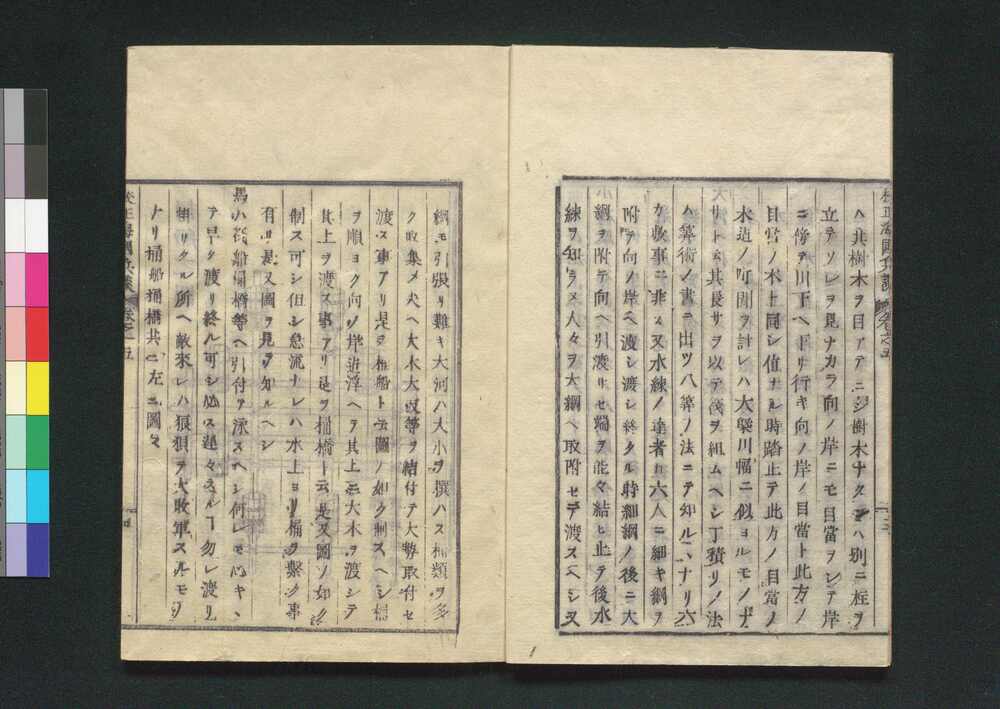 ハ其樹木ヲ目アテニシ樹木ナクンハ別ニ柱ヲ
立テソレヲ見ナカラ向ノ岸ニモ目當ヲシテ岸
ニ傍テ川下ヘ下リ行キ向ノ岸ノ目當ト此方ノ
目當ノ木ト同シ値ナル時踏止テ此方ノ目當ノ
木迠ノ町間ヲ計レハ大槩川幅ニ似ヨルモノナ
リトム其長サヲ以テ筏ヲ組ムヘシ丁積リノ法
ハ算術ノ書ニ出ツ八算ノ法ニテ知ルヽナリ六
カ敷事ニ非ス又水練ノ達者五六人ニ細キ綱ヲ
附テ向ノ岸ヘ渡シ渡シ終タル時細綱ノ後ニ大
綱ヲ附テ向ヘ引渡サセ端ヲ能々結ヒ止テ後水
練ヲ知ラヌ人々ヲ大綱ヘ取附セテ渡スヘシ又
校正海國兵談 卷之五
綱モ引張リ難キ大河ハ大小ヲ撰ハス桶類ヲ多
ク取集メ夫ヘ大木大竹等ヲ結付テ大勢取付セ
渡ス事アリ是ヲ桶船ト云圖ノ如ク制スヘシ桶
ヲ順ヨク向ノ岸迠浮ヘテ其上ニ大木ヲ渡シテ
其上ヲ渡ス事アリ是ヲ桶橋ト云是又圖ノ如ク
制ス可シ但シ急流ナレハ水上ヨリ桶ヲ繫ク事
有リ是又圖ヲ見テ知ルヘシ
馬ハ筏船桶橋等ヘ引付テ泳スヘシ何レモ心キヽ
テ早ク渡リ終ル可シ必ス遲々スルヿ勿レ渡リ
掛リタル所ヘ敵來レハ狼狽テ大敗軍スルモノ
ナリ桶船桶橋共ニ左ニ圖ス
校正海國兵談 卷之五